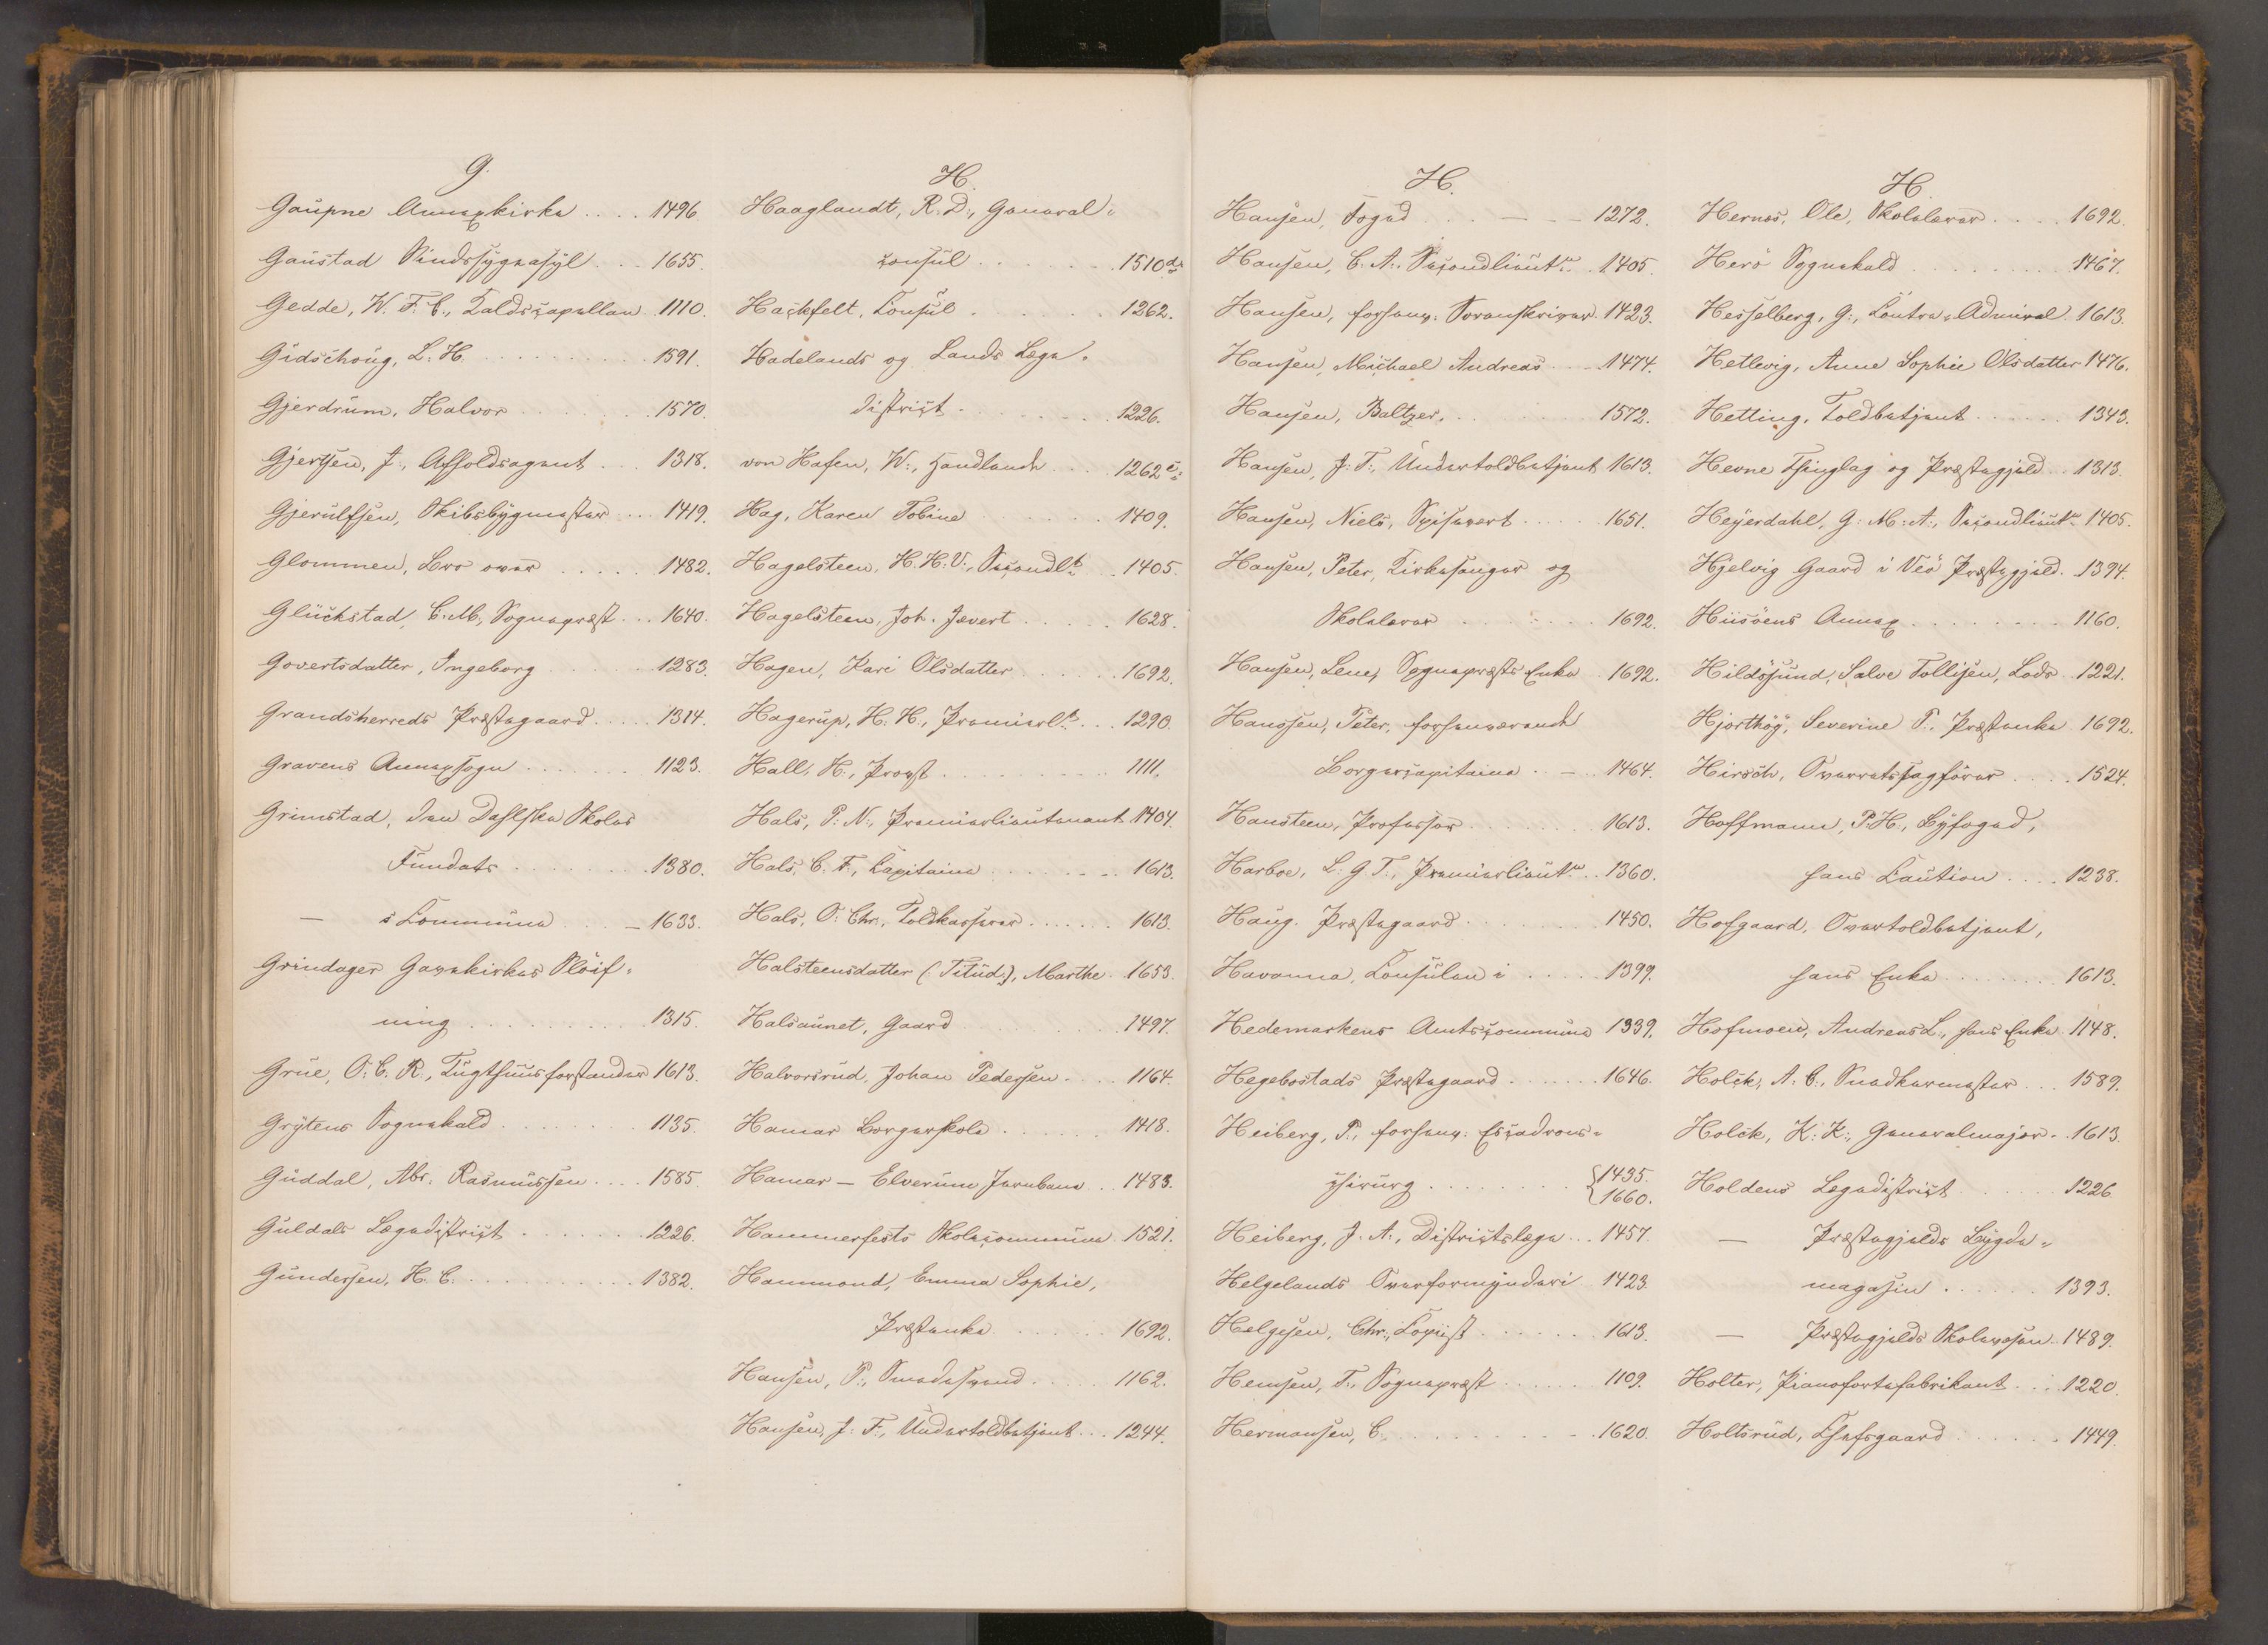 G.
Gaupne Annexkirke .... 1496.
Gaustad Sindssygeasyl ... 1655.
Gedde, W. F. C., Kaldscapellan. 1110.
Gidschoug, L. H. .......... 1591.
Gjerdrum, Halvor ....... 1570.
Gjertsen, J., Assoldsagent ... 1318.
Gjerulfsen, Skibsbygmester ... 1419.
Glommen, Bro over ..... 1482.
Glückstad, C. M., Sognepræst ... 1640.
Govertsdatter, Ingeborg ..... 1283.
Grandsherreds Præstegaard .... 1314.
Gravens Annexsogn ....... 1123.
Grimstad, den Dahlske Skoles
Fundats ........ 1380.
— s Commune ... 1633.
Grindager Gavekirkes Sløif-
ning .......... 1315.
Grüe, O. C. R., Tugthuusforstander 1613.
Grytens Sognekald ........ 1135.
Guddal, Abr. Rasmussen .... 1585.
Guldals Lægedistrict ....... 1226.
Gundersen, H. C. .......... 1382.
H.
Haaglandt, R. D., General-
consul ....... 1510 d.
Hackfelt, Consul ...... 1262.
Hadelands og Lands Læge-
district ....... 1226.
von Hafen, W., Handlende ... 1262 c.
Hag, Karen Tobine ..... 1409.
Hagelsteen, H. H. V., Secondlt. .. 1405.
Hagelsteen, Joh. Jævert ..... 1628.
Hagen, Kari Olsdatter ...... 1692.
Hagerup, H. H., Premierlt. ... 1290.
Hall, H., Provst .......... 1111.
Hals, P. N., Premierlieutenant 1404.
Hals, C. F., Capitaine ....... 1613.
Hals, O. Chr., Toldkasserer ...... 1613.
Halsteensdatter (Titud.), Marthe. 1653.
Halsaunet, Gaard ..... 1497.
Halvorsrud, Johan Pedersen. ... 1164.
Hamar Borgerskole ...... 1418.
Hamar — Elverum Jernbane ... 1483.
Hammerfests Skolecommune 1521.
Hammond, Emma Sophie,
Præsteenke ...... 1692.
Hansen, P., Smedesvend .... 1162.
Hansen, J. F., Undertoldbetjent ... 1244.
H.
Hansen, Foged .. — - 1272.
Hansen, C. A., Secondlieutn. . 1405.
Hansen, forhenv. Sorenskriver. 1423.
Hansen, Michael Andreas ... 1474.
Hansen, Baltzer. ....... 1572.
Hansen, J. F., Undertoldbetjent 1613.
Hansen, Niels, Spisevert .... 1651.
Hansen, Peter, Kirkesanger og
Skolelærer ........ 1692.
Hansen, Lene, Sognepræsts Enke . 1692.
Hanssen, Peter, forhenværende
Borgercapitaine . — . 1464.
Hansteen, Professor ....... 1613.
Harboe, L. G. T., Premierlieutn. .. 1360.
Haug. Præstegaard ....... 1450.
Havanna, Consulen i .... 1399.
Hedemarkens Amtscommune 1339.
Hegebostads Præstegaard ...... 1646.
Heiberg, P., forhenv. Escadrons-
chirurg ........ {1435.
1660.
Heiberg, J. A., Districtslæge ... 1457.
Helgelands Overformynderi 1423.
Helgesen, Chr., Copiist ...... 1613.
Hemsen, T., Sognepræst ...... 1109.
Hermansen, C. ......... 1620.
H.
Hernes, Ole, Skolelærer .... 1692.
Herø Sognekald ........ 1467.
Hesselberg, G., Contra-Admiral. 1613.
Hetlevig, Anne Sophie Olsdatter 1476.
Hetting, Toldbetjent ...... 1343.
Hevne Thinglag og Præstegjeld .. 1313.
Heyerdahl, G. M. A., Secondlieutn. 1405.
Hjelvig Gaard i Veø Præstegjeld. 1394.
Hiisøens Annex ........ 1160.
Hildøsund, Salve Tollisen, Lods . 1221.
Hjorthøy, Severine P., Præsteenke 1692.
Hirsch, Overretssagfører .... 1524.
Hoffmann, P. H., Byfoged,
hans Caution .... 1238.
Hofgaard, Overtoldbetjent,
hans Enke ........ 1613.
Hofmoen, Andreas L., hans Enke 1148.
Holck, A. C., Snedkermester ... 1589.
Holck, K. K., Generalmajor. . 1613.
Holdens Lægedistrict ..... 1226.
— Præstegjelds Bygde-
magasin ...... 1393.
— Præstegjelds Skolevæsen. 1489.
Holter, Pianofortefabrikant ... 1220.
Holtsrud, Chefsgaard ...... 1449.